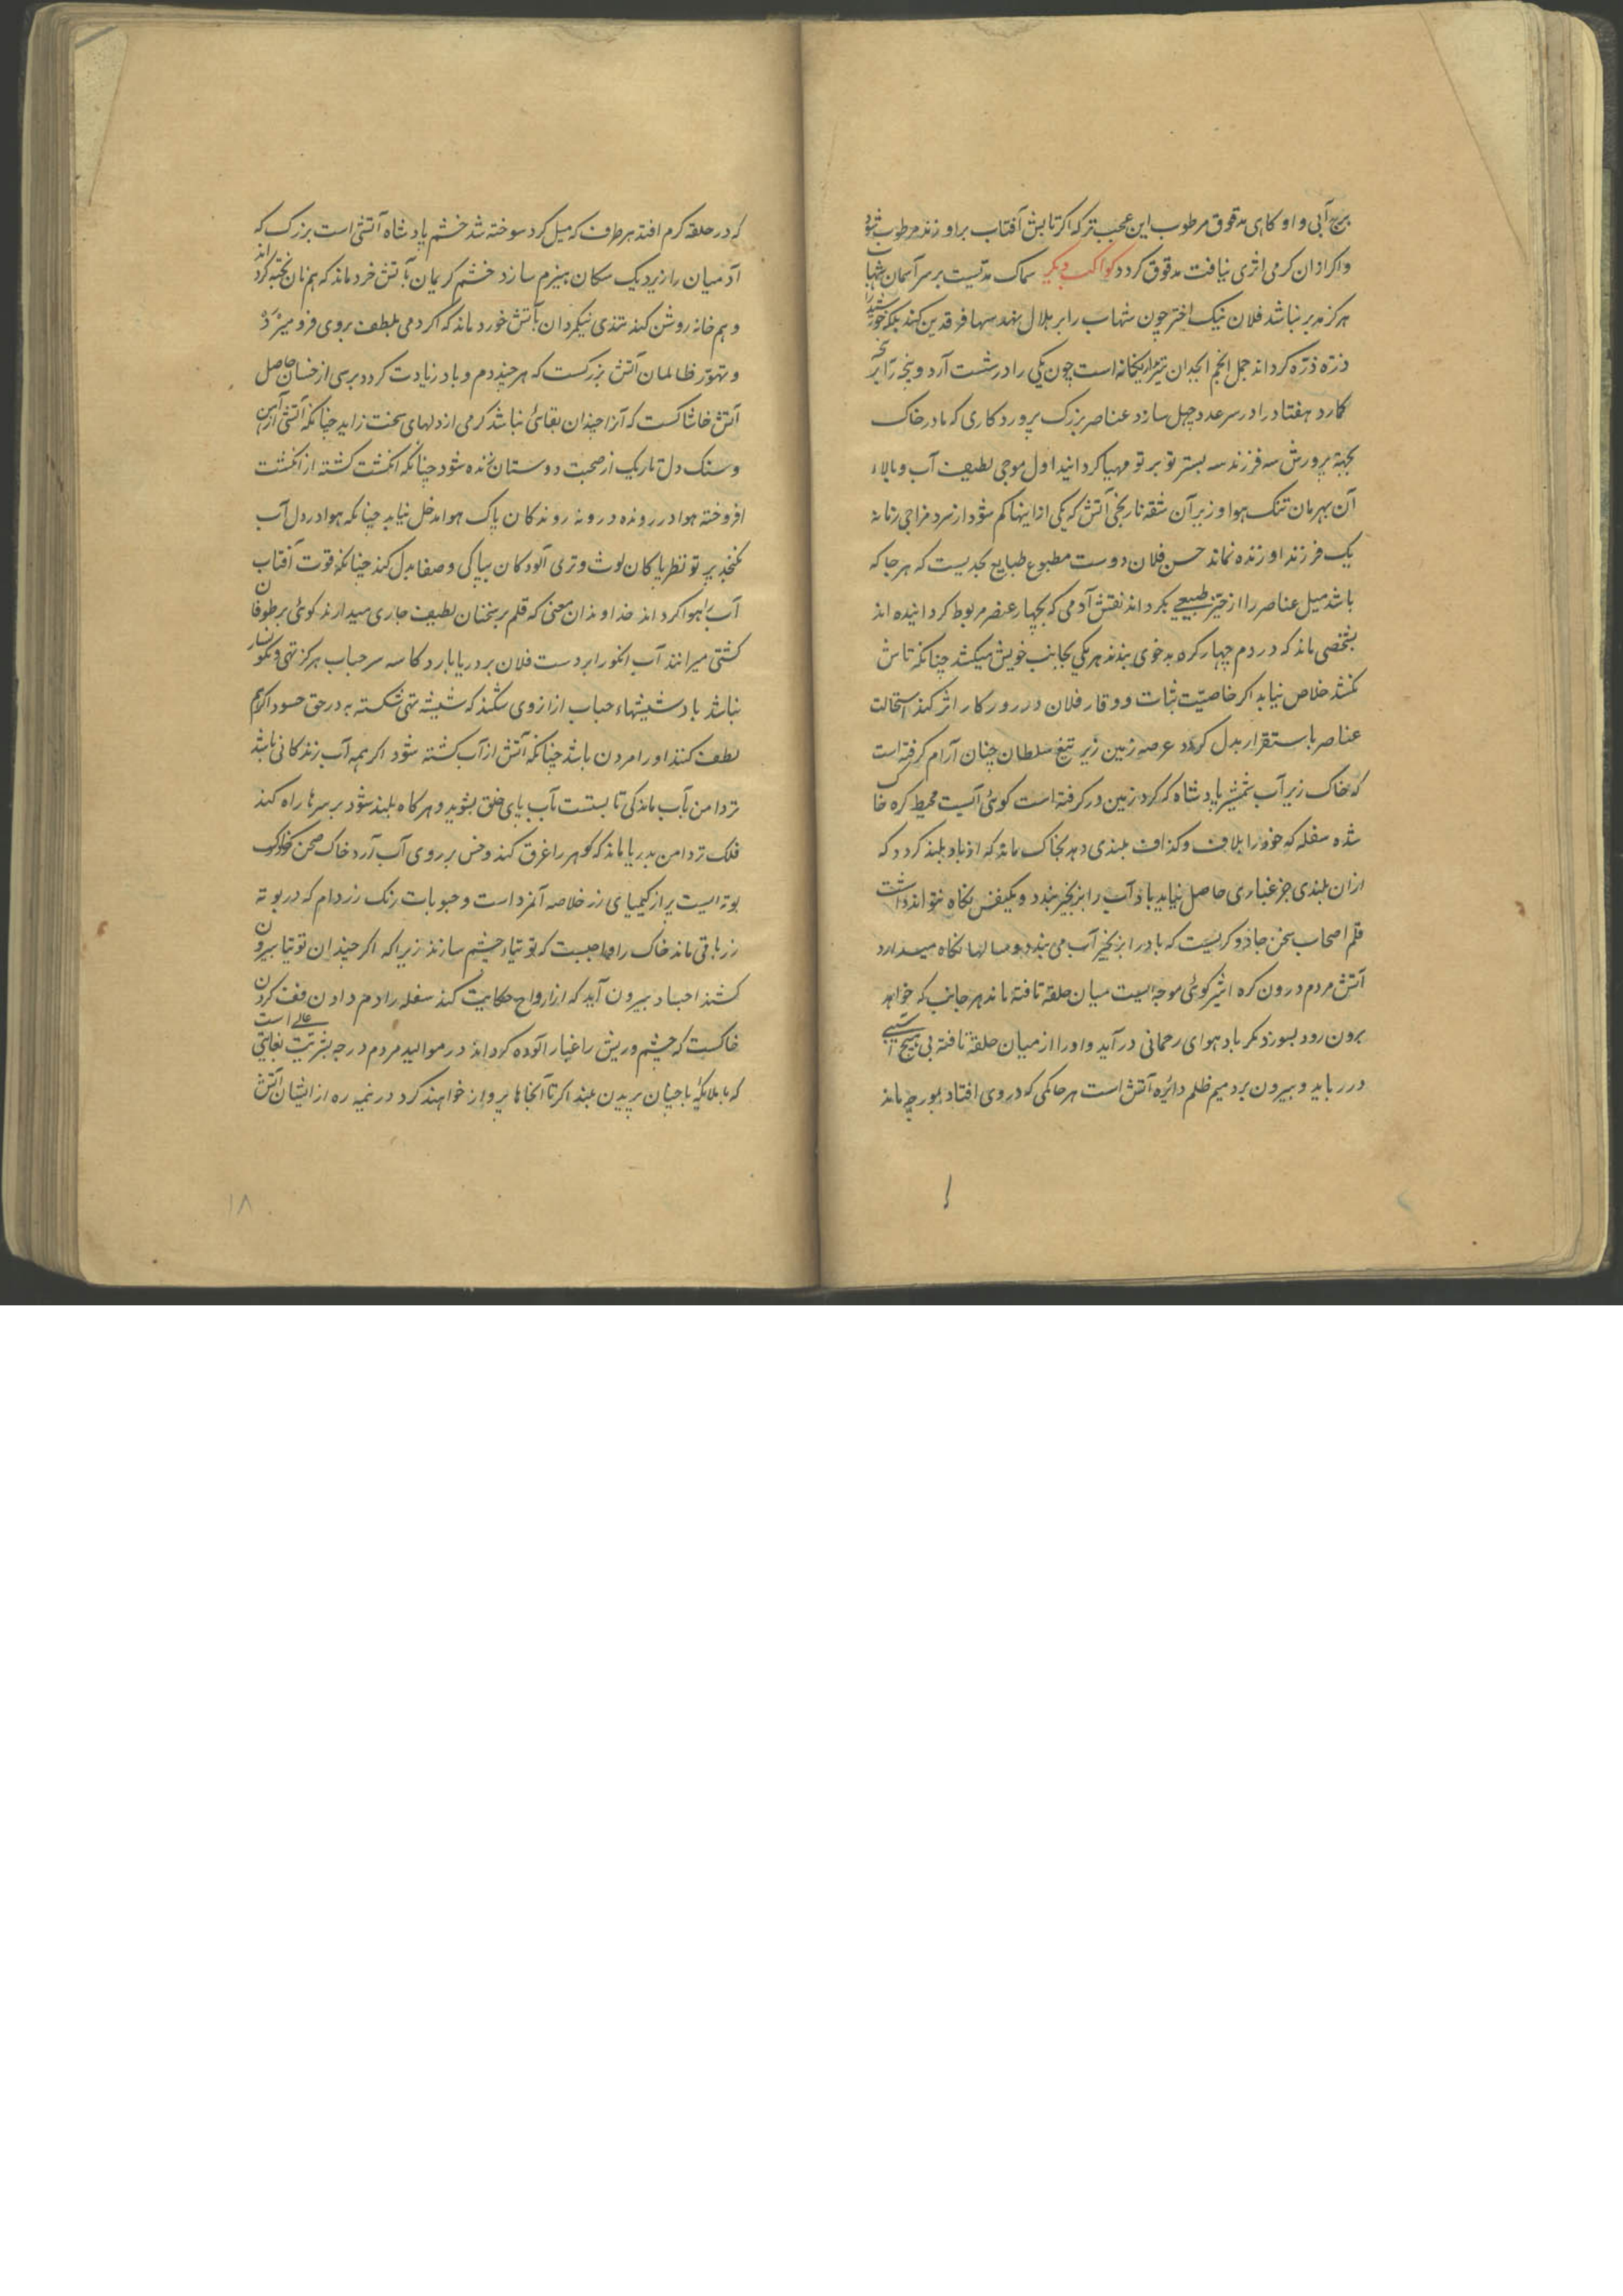 برج آبی و او کاهی مدقوق مرطوب این عجب تر که اگر تابش آفتاب براو زند مرطوب شود
و اکر ازان کرمی اثری نیافت مدقوق کردد کواکب دیکر سماک مدتیست بر سر آسمان شهاب
هرکز مدبر نباشد فلان نیک اختر چون شهاب را بر هلال نهد سها فرقدین کند بلکه خورشید را
ذره ذره کرداند جمل انجم ابجدان تیرانکخانه است چون یکی را در شست آرد و پنجه را بر
کمارد هفتاد را در سر عدد چهل سازد عناصر بزرک پروردکاری که مادر خاک
بجهة پرورش سه فرزند سه بستر تو بر تو مهیا کردانید اول موجی لطیف آب و بالاء
آن بهرمان تنک هوا و زبر آن شقه نارنجی آتش که یکی ازاینها کم شود از سرد مزاجی زمانه
یک فرزند او زنده نماند حسن فلان دوست مطبوع طبایع بحدیست که هر جا که
باشد میل عناصر را از حیز طبیعی بکرداند نقش آدمی که بچهار عنصر مربوط کردانیده اند
بشخصی ماند که در دم چهار کره بدخوی بندند هر یکی بجانب خویش میکشد چنانکه تاش
نکشد خلاص نیابد اکر خاصیت ثبات و وقار فلان در روزکار اثر کند استحالت
عناصر باستقرار بدل کردد عرصه زمین زیر تیغ سلطان چنان آرام کرفته است
که خاک زیر آب شمشیر پادشاه که کرد زمین در کرفته است کوئی آبیست محیط کره خاک
شده سفله که خود را بلاف و کذاف بلندی دهد بخاک ماند که از باد بلند کردد که
ازان بلندی جز غباری حاصل نیاید باد آب را بزنجیر بندد و یکنفس نکاه نتواند داشت
قلم اصحاب سخن جادوکریست که باد را بزنجیر آب می بندد و سالها نکاه میدارد
آتش مردم درون کره اثیر کوئی موجه ایست میان حلقه تافته ماند هر جانب که خواهد
برون رود بسوزد مکر باد هوای رحمانی در آید و او را از میان حلقه تافته بی هیچ آسیبی
در رباید و بیرون برد میم ظلم دائره آتش است هر حاکمی که در وی افتاد بمورچه ماند
که در حلقه کرم افتد هر طرف که میل کرد سوخته شد خشم پادشاه آتشی است بزرک که
آدمیان را نزدیک سکان هیزم سازد خشم کریمان بآتش خرد ماند که هم نان پخته کرداند
و هم خانه روشن کند تندی نیکمردان بآتش خورد ماند که اکر دمی بلطف بروی فرو میرد
و تهور ظالمان آتش بزرکست که هر چند دم و باد زیادت کردد برسی از خسان حاصل
آتش خاشاکست که آنرا چندان بقائی نباشد کرمی از دلهای سخت زاید چنانکه آتش از آهن
و سنک دل تاریک از صحبت دوستان زنده شود چنانکه انکشت کشته از انکشت
افروخته هوا در رونده درونه روندکان پاک هوا مدخل نیابد چنانکه هوا در دل آب
نکنجد پرتو نظر پاکان لوث و تری آلودکان بپاکی و صفا بدل کند چنانکه قوت آفتاب
آب را هوا کرداند خداوندان معنی که قلم بر سخنان لطیف جاری میدارند کوئی بر طوفان
کشتی میرانند آب انکور ابر دست فلان بر دریا بارد کاسه سر حباب هرکز تهی و نکونسار
نباشد باد شیشهاء حباب ازان روی شکند که شیشه تهی شکسته به در حق حسود اکر هم
لطف کنند او را مردن باشد چنانکه آتش از آب کشته شود اکر همه آب زندکانی باشد
تردامن بآب ماند کی تا پستست بآب پای خلق بشوید و هر کاه بلند شود بر سرها راه کند
فلک تردامن بدریا ماند که کوهر را غرق کند و خس بر روی آب آرد خاک صحن خاک
بوته ایست پر از کیمیای زر خلاصه آنمزد است و حبوبات رنک زر دام که در بوته
زر باقی ماند خاک را واجبست که توتیاء چشم سازند زیرا که اکر چندان توتیا بیرون
کشند اجساد بیرون آید که از ارواح حکایت کند سفله را دم دادن قفت کردن
خاکست که چشم و ریش را غبار آلوده کرداند در موالید مردم درجه بشریت بغایتی عالی است
که با ملائکه باجنبان پریدن بلند اکر تا آنجاها پرواز خواهند کرد در نیمه ره از ایشان آتش
۱۸